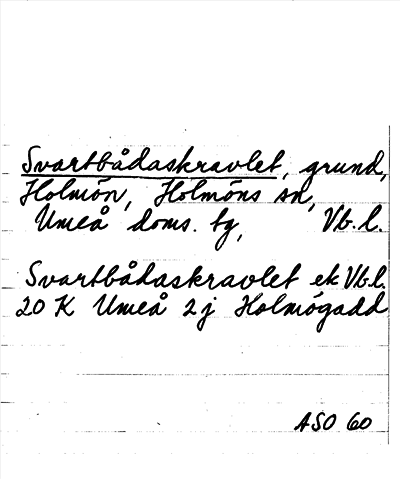 Svartbådaskravlet, grund,
Holmön, Holmöns sn,
Umeå doms. tg, Vb.l.
Svartbådaskravlet ek Vb.l.
20 K Umeå 2j Holmögadd
ASO 60